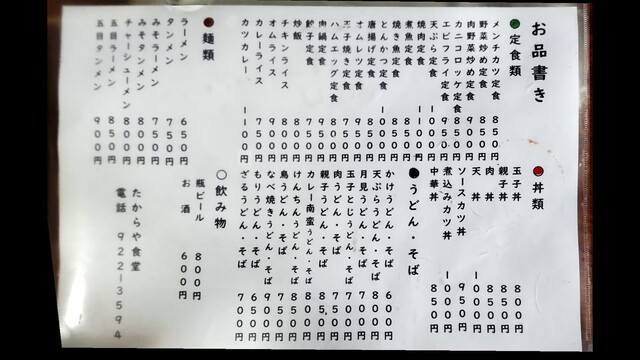 お品書き
●定食類
メンチカツ定食 850円
野菜炒め定食 850円
肉野菜炒め定食 900円
カニコロッケ定食 850円
エビフライ定食 950円
天ぷら定食 1100円
焼肉定食 1000円
煮魚定食 850円
焼き魚定食 850円
とんかつ定食 1000円
唐揚げ定食 850円
オムレツ定食 750円
玉子焼き定食 750円
ハムエッグ定食 750円
肉鍋定食 950円
餃子定食 750円
炒飯
チキンライス 800円
オムライス 850円
カレーライス 750円
カツカレー 1100円
●麺類
ラーメン 650円
タンメン 750円
みそラーメン 750円
みそタンメン 800円
チャーシューメン 800円
五目ラーメン 850円
五目タンメン 900円
●丼類
玉子丼 800円
親子丼 850円
肉丼 850円
天丼 1100円
ソースカツ丼 950円
煮込みカツ丼 1000円
中華丼 850円
●うどん・そば
かけうどん・そば 600円
天ぷらうどん・そば 800円
月見うどん・そば 700円
玉子とじうどん・そば 750円
肉うどん・そば 750円
親子うどん・そば 850円
カレー南蛮うどん・そば 800円
けんちんうどん・そば 850円
鳥うどん・そば 750円
なべ焼きうどん・そば 900円
もりうどん・そば 650円
ざるうどん・そば 700円
○飲み物
瓶ビール 800円
お酒 600円
たからや食堂
電話 922-3594